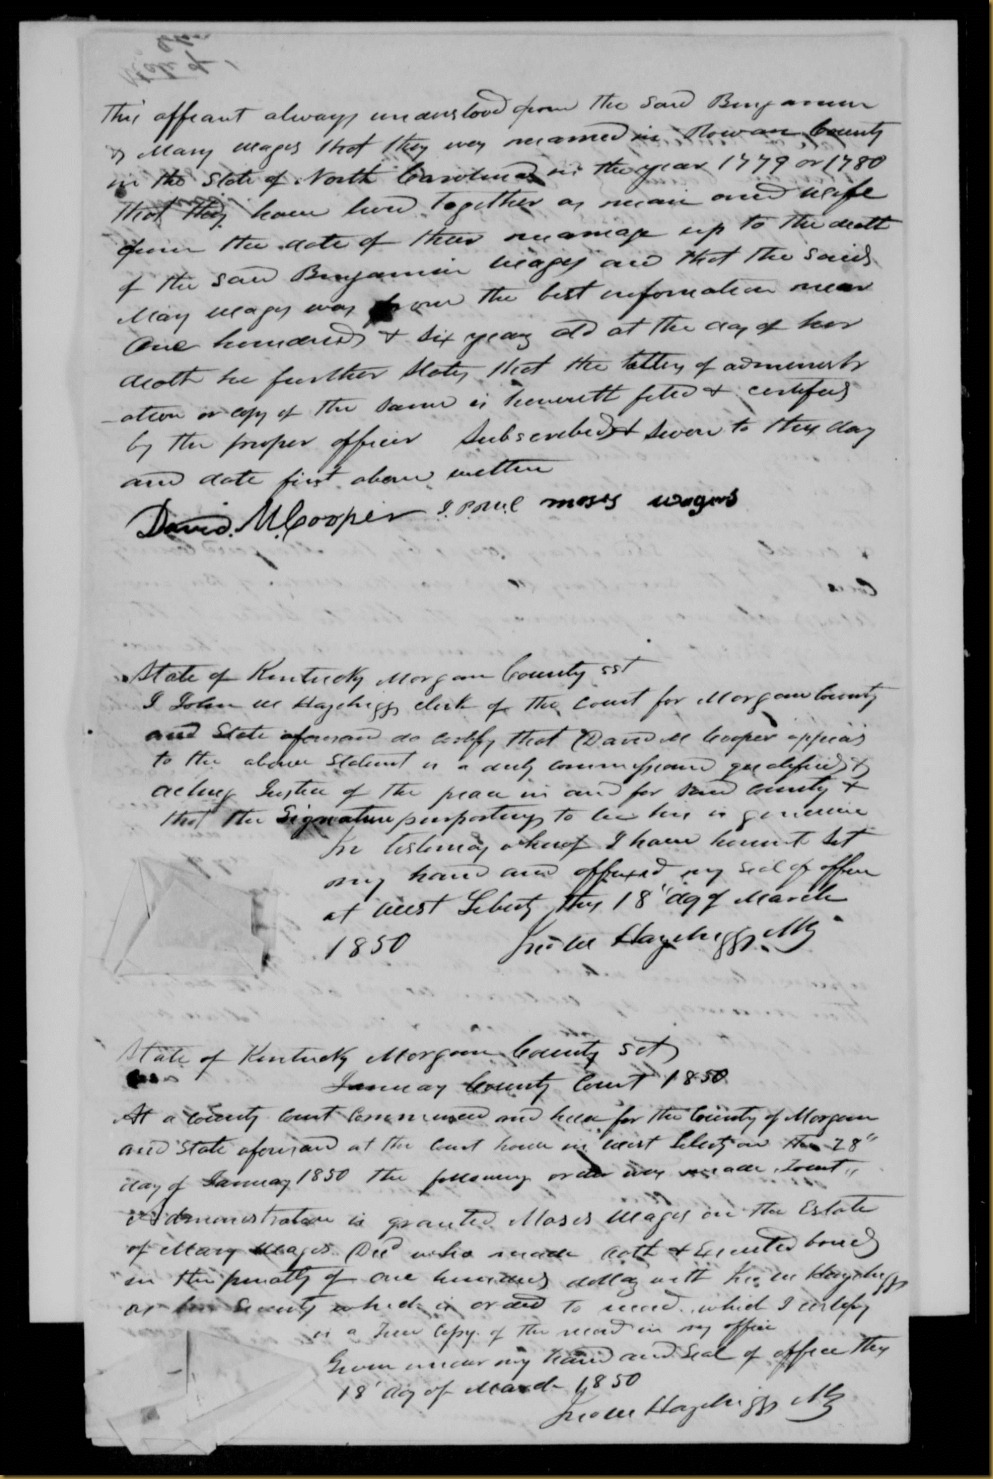 This affiant always understood from the said Benjamin
& Mary Wages that they wer married in Rowan County
in the State of North Carolina in the year 1779 or 1780
that they have lived together as man and wife
from the date of their marriage up to the death
of the said Benjamin Wages and that the said
Mary Wages was from the best information near
One hundred & six years old at the day of her
death he further States that the letters of administr
-ation or copy of the same is herewith filed & certified
by the proper officer Subscribed & Sworn to this day
and date first above written
David M. Cooper J.P.M.C moses wagers
State of Kentucky Morgan County sst
I John M Hazelrigg clerk of the court for Morgan County
and State aforesaid do certify that David M Cooper
to the above Statement is a duly commissioned qualified &
acting Justice of the peace in and for said County &
that the Signature purporting to be his is genuine
In testimony whereof I have hereunto Set
my hand and affixed my Seal of office
at West Liberty this 18" day of March
1850 Jno M Hazelrigg
State of Kentucky Morgan County Sct
January County Court 1850
At a County Court Commenced and held for the County of Morgan
and State aforesaid at the Court house in West Liberty on the 28"
day of January 1850 the following order was made Towit,,
Administration is granted Moses Wages on the Estate
of Mary Wages Decd who made oath & Executed bond
in the penalty of one hundred dollars with Jno M Hazelrigg
as his Security which is ordered to record. which I certify
is a True Copy of the record in my office
Given under my hand and Seal of office this
18' day of March 1850
Jno M Hazelrigg